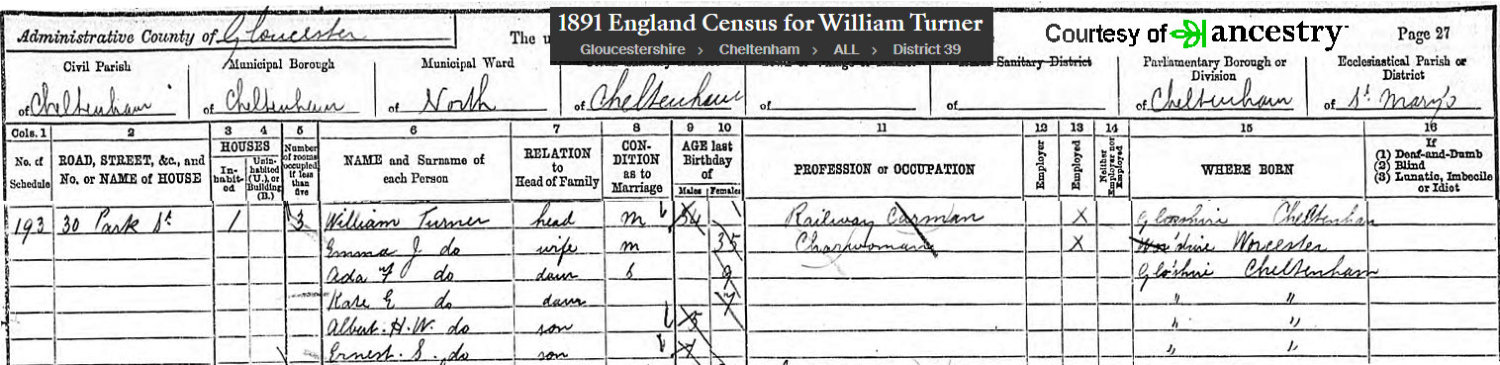 1891 England Census for William Turner
Gloucestershire > Cheltenham > ALL > District 39
Courtesy of ancestry
Page 27
Administrative County of Gloucester
The u
Civil Parish
of Cheltenham
Municipal Borough
of Cheltenham
Municipal Ward
of North
of Cheltenham
of
Sanitary District
of
Parliamentary Borough or Division
of Cheltenham
Ecclesiastical Parish or District
of St Mary's
Cols. 1 2 3 4 5 6 7 8 9 10 11 12 13 14 15 16
No. of Schedule
ROAD, STREET, &c., and No. or NAME of HOUSE
HOUSES
In-habit-ed
Unin-habited (U.), or Building (B.)
Number of rooms occupied if less than five
NAME and Surname of each Person
RELATION to Head of Family
CON-DITION as to Marriage
AGE last Birthday of
Males Females
PROFESSION or OCCUPATION
Employer
Employed
Neither Employer nor Employed
WHERE BORN
If
(1) Deaf-and-Dumb
(2) Blind
(3) Lunatic, Imbecile or Idiot
193 30 Park St 1 3 William Turner head M 34 Railway Carman X Glosshire Cheltenham
Emma J do wife M 35 Charwoman X Worcester
Ada F do daur S 9 Glo'shire Cheltenham
Kate E do daur 7 " "
Albert H. W. do son 5 " "
Ernest S. do son " "